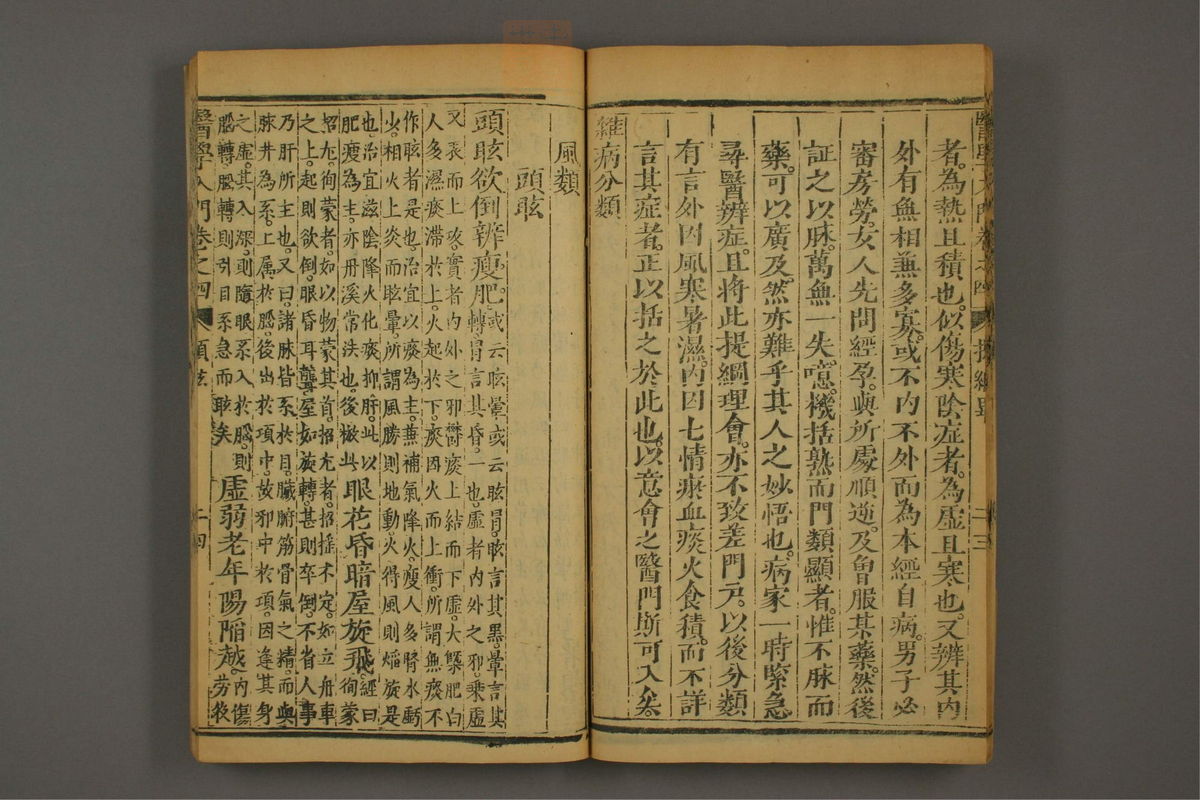 醫學入門卷之四 提綱畢 二三
者。為熱且積也。似傷寒陰症者。為虛且寒也。又辨其內
外有無相兼多寡。或不內不外而為本經自病。男子必
審房勞。女人先問經孕。與所處順逆。及曾服某藥。然後
証之以脉。萬無一失。噫。機括熟而門類顯者。惟不脉而
藥。可以廣及。然亦難乎其人之妙悟也。病家一時緊急
尋醫辨症。且將此提綱理會。亦不致差門戶。以後分類
有言外因風寒暑濕。內因七情瘀血痰火食積。而不詳
言其症者。正以括之於此也。以意會之。醫門斯可入矣。
雜病分類
風類
頭眩
頭眩欲倒辨瘦肥。或云眩暈。或云眩冒。眩言其黑。暈言其
轉。冒言其昏。一也。虛者內外之邪。乘虛
入表而上攻。實者內外之邪。鬱痰上結而下虛。大槩肥白
人多濕痰滯於上。火起於下。痰因火而上衝。所謂無痰不
作眩者是也。治宜以痰為主。兼補氣降火。瘦人多腎水虧
少。相火上炎而眩暈。所謂風勝則地動。火得風則焰旋是
也。治宜滋陰降火化痰抑肝。此以
肥瘦為主。亦丹溪常法也。後倣此
眼花昏暗屋旋飛。經曰
徇蒙
招尤。徇蒙者。如以物蒙其首。招尤者。招搖不定。如立舟車
之上。起則欲倒。眼昏耳聾。屋如旋轉。甚則卒倒。不省人事
乃肝所主也。又曰。諸脉皆系於目。臟腑筋骨氣之精。而與
脉并為系。上属於腦。後出於項中。故邪中於項。因逢其身
之虛。其入深。則隨眼系入於腦。則
腦轉。腦轉則引目系急而眩矣
虛弱老年陽陷越。內傷
勞役
醫學入門卷之四 頭眩 二四